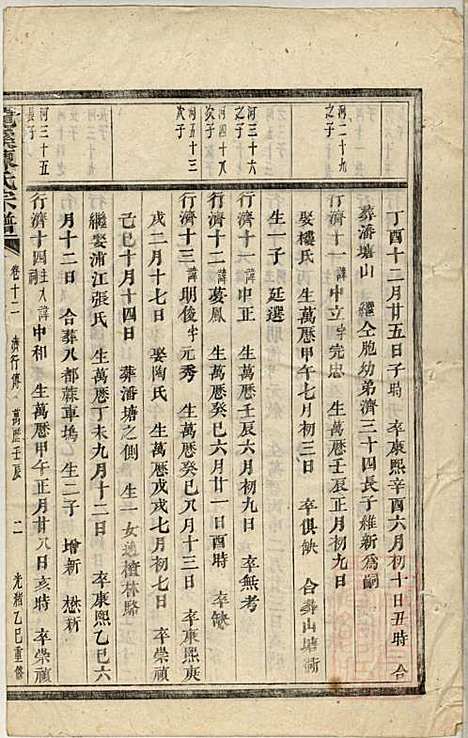 丁酉十二月廿五日子時　卒康熙辛酉六月初十日丑時　合
葬潘塘山　繼仝胞幼弟濟三十四長子維新為嗣
河二十九之子
行濟十一諱中立字完忠　生萬曆壬辰正月初九日
娶樓氏　生萬曆甲午七月初三日　卒俱缺　合葬山塘衕
生一子　延選
河三十六長子
行濟十一諱中正　生萬曆壬辰六月初九日　卒無考
河四十八次子
行濟十二諱茭鳳　生萬曆癸巳六月廿一日酉時　卒缺
河五十三次子
行濟十三諱明俊字元秀　生萬曆癸巳八月十三日　卒康熙庚
戌二月十七日　娶陶氏　生萬曆戊戌七月初七日　卒崇禎
己巳十月十四日　葬潘塘之側　生一女適檀林駱
繼娶浦江張氏　生萬曆丁未九月十二日　卒康熙乙巳六
月十二日　合葬八都蔴車塢　生二子　增新　懋新
河三十五長子
行濟十四主入祠諱中和　生萬曆甲午正月廿八日亥時　卒崇禎
龍溪陳氏宗譜
卷十二　濟行傳　萬曆壬辰　二　光緒乙巳重修